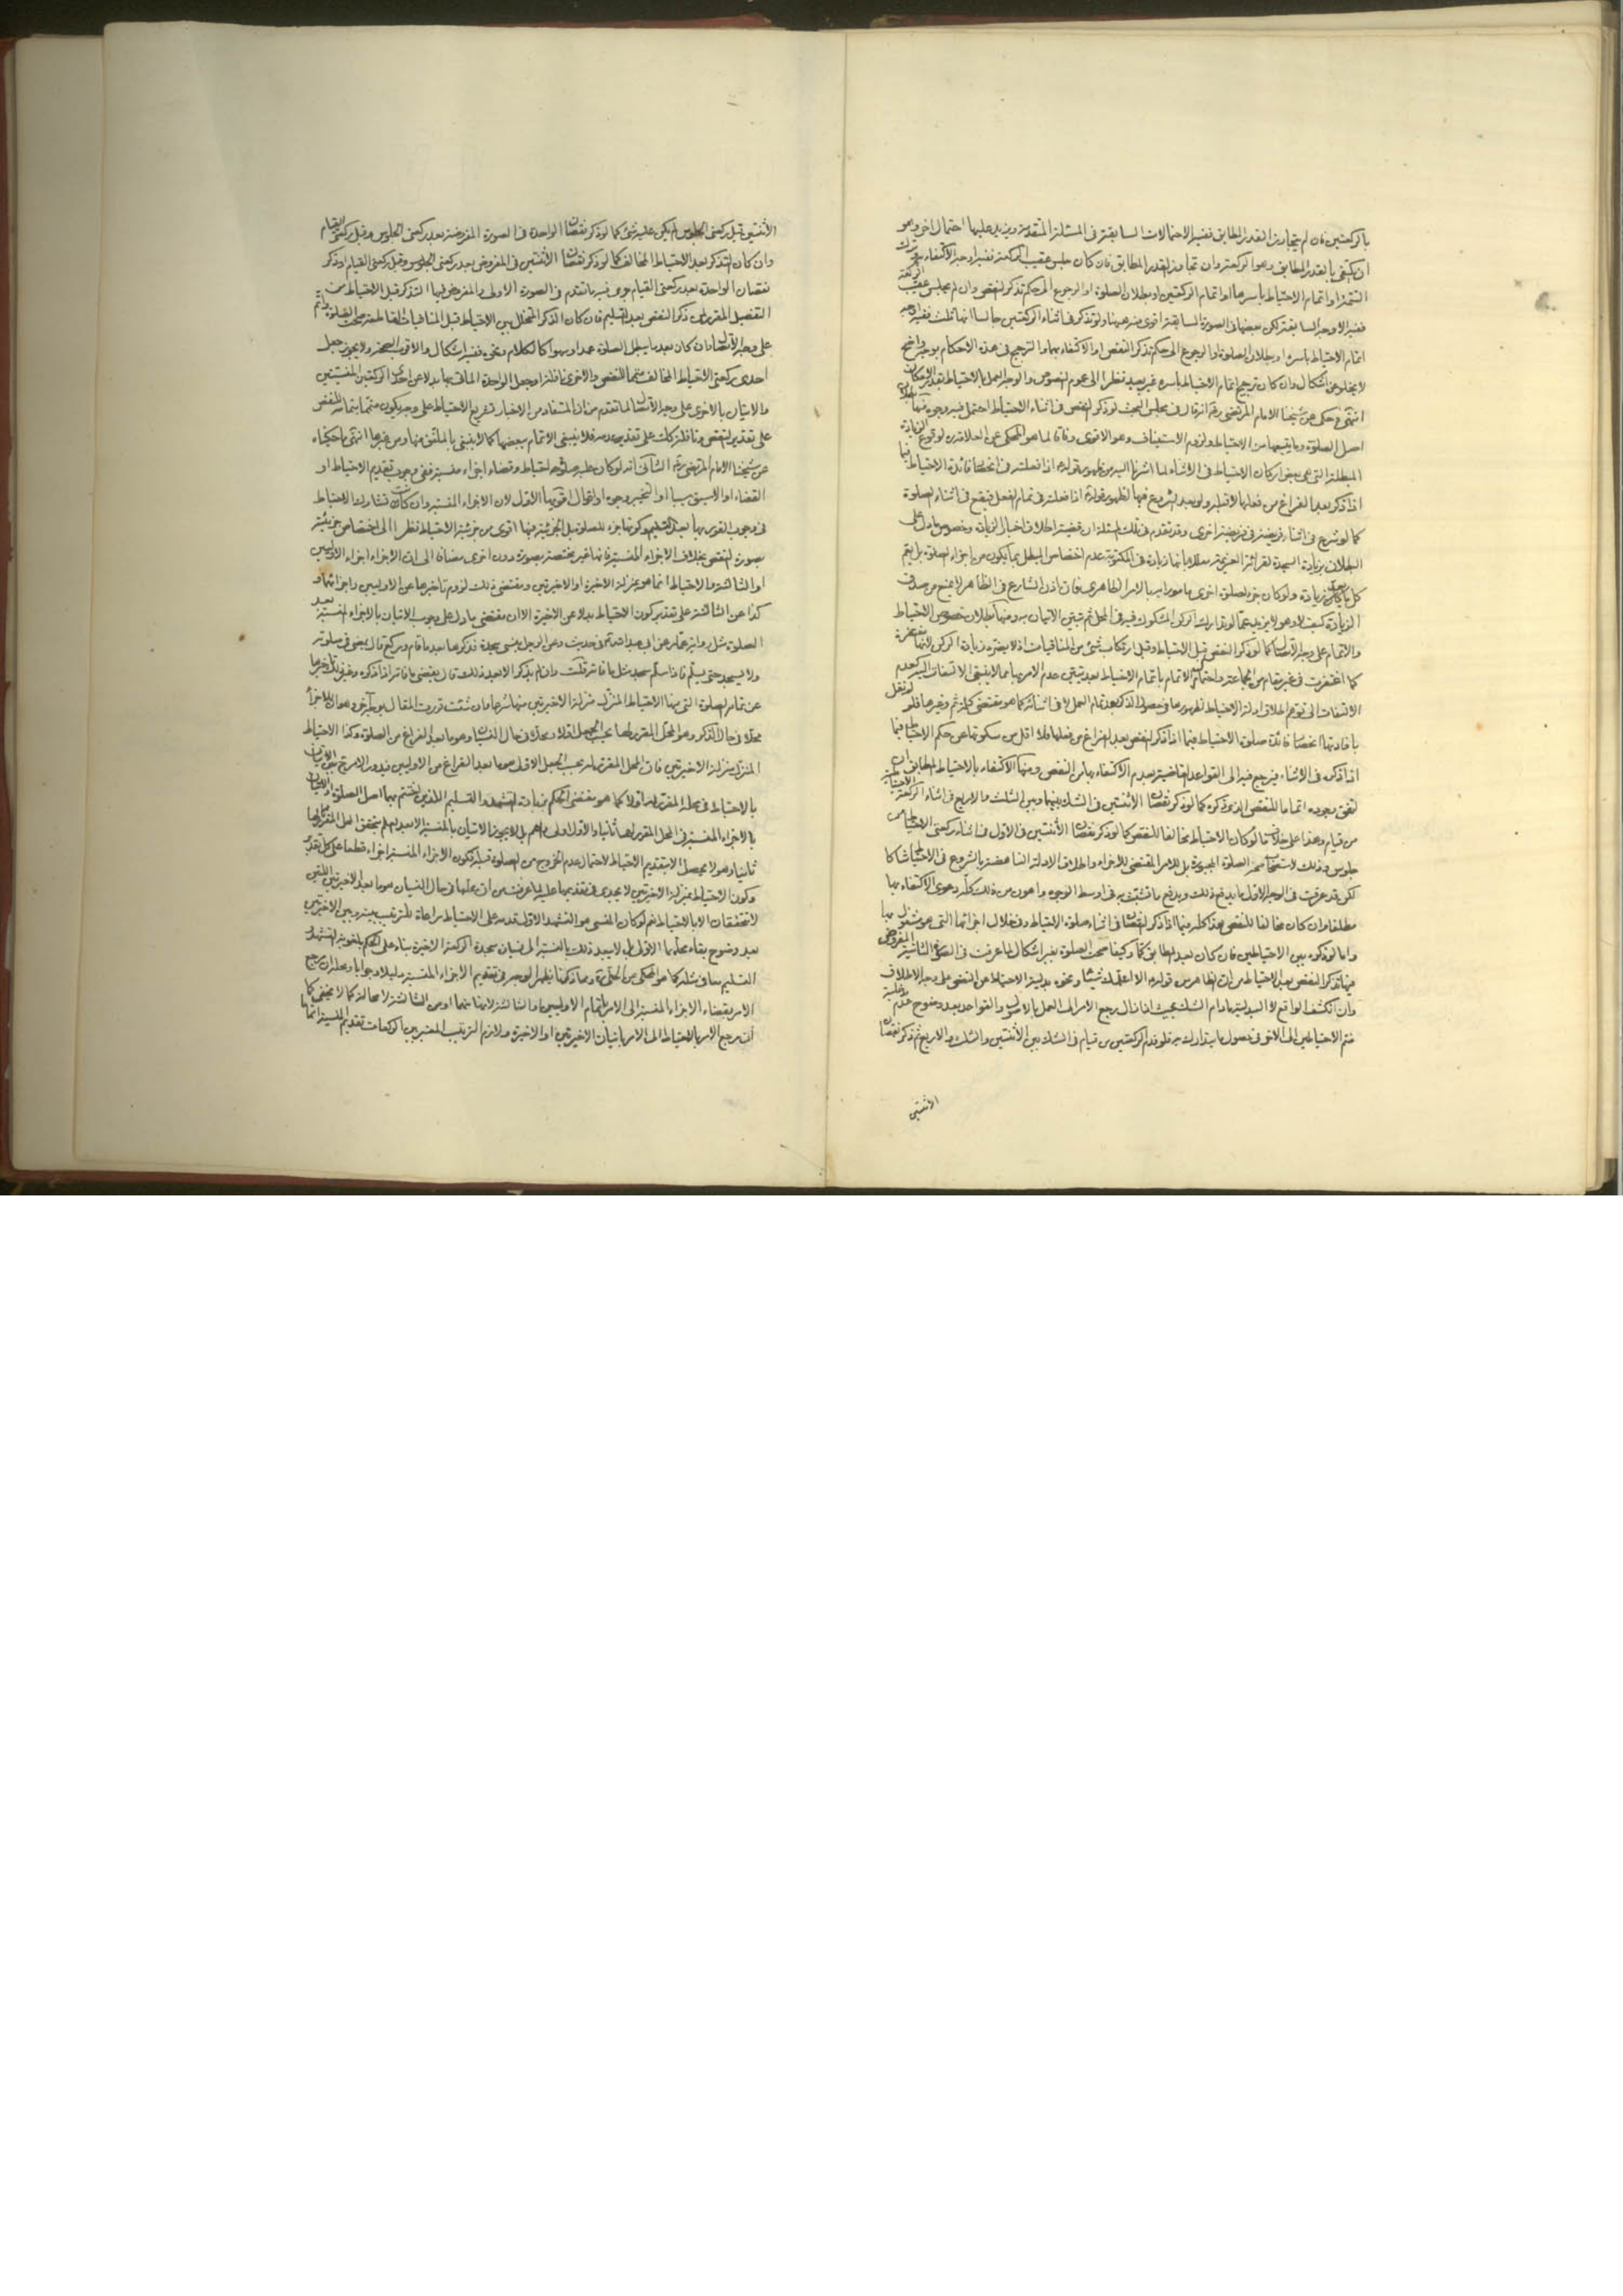 بالركعتين فان لم يتجاوز القدر المطابق ففيه الاحتمالات السابقة في المسئلة المتقدمة ويزيد عليها احتمال اخر وهو
ان يكتفي بالقدر المطابق وهو الركعة وان تجاوز القدر المطابق فان كان جلس عقيب الركعة ففيه اوجه الاكتفاء
التتمة او اتمام الاحتياط باسرها او اتمام الركعتين او بطلان الصلوة او الرجوع الى حكم تذكر النقص وان لم يجلس عقيب الركعة
ففيه الاوجه السابقة لكن بعضها في الصورة السابقة اقوى منه هيهنا ولو تذكر في اثناء الركعتين جالسا
اتمام الاحتياط باسره او بطلان الصلوة او الرجوع الى حكم تذكر النقص او الاكتفاء بهما والترجيح في هذه الاحكام بوجه واضح
لا يخلو عن اشكال وان كان ترجيح اتمام الاحتياط باسره غير بعيد نظرا الى عموم النصوص والوجه العمل بالاحتياط بقدر الامكان
انتهى وحكى عن شيخنا الامام المرتضى انه قال في مجلس البحث لو ذكر النقص في اثناء الاحتياط احتمل فيه وجوه منها بطلان
اصل الصلوة وما يتبعها من الاحتياط ولزوم الاستيناف وهو الاقوى وفاقا لما هو المحكي عن العلامة لوقوع الزيادة
المبطلة التي هي بعض اركان الاحتياط في الاثناء لما اشرنا اليه من ظهور قوله اذا فعلت في انحصار فائدة الاحتياط فيما
اذا ذكر بعد الفراغ من فعلها لا قبله ولو بعد الشروع فيها لظهور قوله اذا فعلت في تمام الفعل فيقع في اثناء الصلوة
كما لو شرع في اثناء فريضة في فريضة اخرى وقد تقدم في تلك المسئلة ان قضية اطلاق اخبار الزيادة وخصوص ما دل على
البطلان بزيادة السجدة لقرائة العزيمة معللا بانها زيادة في المكتوبة عدم اختصاص المبطل بما يكون من اجزاء الصلوة بل يعم
كل ما يعد زيادة ولو كان جزء لصلوة اخرى مامورا به بالامر الظاهري فان اذن الشارع في الظاهر لا يمنع من صدق
الزيادة كيف لا وهو لا يزيد عما لو تدارك الركن المشكوك فيه في المحل ثم تبين الاتيان به ومنها بطلان خصوص الاحتياط
والاتمام على وجه الاتصال كما لو ذكر النقص قبل الاحتياط وقبل ارتكاب شئ من المنافيات اذ لا يضره زيادة الركن لانها مغتفرة
كما اغتفرت في غير مقام من الجماعة واحتمال الاتمام باتمام الاحتياط بعد تبين عدم الامر بها مما لا ينبغي الالتفات اليه كعدم
الالتفات الى توهم اطلاق ادلة الاحتياط لظهورها في حصول الذكر بعد تمام العمل لا في اثنائه كما هو مقتضى كلمة ثم وغيرها فلو لم نقل
بافادتها انحصار فائدة صلوة الاحتياط فيما اذا ذكر النقص بعد الفراغ من فعلها فلا اقل من سكوتها عن حكم الاحتياط فيما
اذا ذكره في الاثناء فيرجع فيه الى القواعد القاضية بعدم الاكتفاء بها عن النقص ومنها الاكتفاء بالاحتياط المطابق اي
لنقص وجوده اتماما للنقص الذي ذكره كما لو ذكر نقصان الاثنتين في الشك بينهما وبين الثلث والاربع في اثناء الركعتين
من قيام وهذا على خلاف ما لو كان بالاحتياط مخالفا للنقص كما لو ذكر نقصان الاثنتين في الاول في اثناء ركعتي الاحتياط من
جلوس وذلك لاستصحاب صحة الصلوة المجبورة بل للامر المقتضي للاجزاء واطلاق الادلة الناهضة بالشروع في الاحتياط شاكا
لكن قد عرفت في الوجه الاول ما يدفع ذلك ويدفع ما تشبث به في اوسط الوجوه واهون من ذلك كله دعوى الاكتفاء بها
مطلقا وان كان مخالفا للنقص هذا كله فيما اذا ذكر النقصان في اثناء صلوة الاحتياط وفي خلال اجزائها التي هو مشتغل بها
واما لو ذكره بين الاحتياطين فان كان بعد المطابق كما وكيفا صحت الصلوة بغير اشكال لما عرفت في الصورة الثانية المفروض
فيها تذكر النقص بعد الاحتياط من ان الظاهر من قوله الا اعلمك شيئا ونحوه بدلية الاحتياط عن النقص على وجه الاطلاق
وان انكشف الواقع لا البدلية ما دام الشك بحيث اذا زال يرجع الامر الى العمل بالاصول والقواعد بعد وضوح عدم مدخلية
ضم الاحتياطين الى الاخر في حصول ما يتدارك به فلو قدم الركعتين من قيام في الشك بين الاثنتين والثلث والاربع ثم ذكر نقصان
الاثنتين
الاثنتين قبل ركعتي الجلوس لم يكن عليه شئ كما لو ذكر نقصان الواحدة في الصورة المفروضة بعد ركعتي الجلوس وقبل ركعتي القيام
وان كان التذكر بعد الاحتياط المخالف كما لو ذكر نقصان الاثنتين في المفروض بعد ركعتي الجلوس وقبل ركعتي القيام او ذكر
نقصان الواحدة بعد ركعتي القيام جرى فيه ما تقدم في الصورة الاولى والمفروض فيها التذكر قبل الاحتياط من
التفصيل المقرر في ذكر النقص بعد التسليم فان كان الذكر المتخلل بين الاحتياط قبل المنافيات القاطعة صحت الصلوة واتم
على وجه الاتصال وان كان بعد ما يبطل الصلوة عمدا وسهوا كالكلام ونحوه ففيه اشكال والاقوى الصحة ولا يجوز جعل
احدى ركعتي الاحتياط المخالف متمما للنقص والاخرى نافلة او جعل الواحدة الماتي بها بدلا عن احدى الركعتين المنسيتين
والاتيان بالاخرى على وجه الاتصال لما تقدم من ان المستفاد من الاخبار تشريع الاحتياط على وجه يكون متمما بتمامه للنقص
على تقدير النقص ونافلة كذلك على تقدير عدمه فلا ينبغي الاتمام ببعضها كما لا ينبغي بالملفق منها ومن غيرها انتهى ما حكيناه
عن شيخنا الامام المرتضى الثاني انه لو كان عليه صلوة احتياط وقضاء اجزاء منسية ففي وجوب تقديم الاحتياط او
القضاء او الاسبق سببا او التخيير وجوه واقوال اقويها الاول لان الاجزاء المنسية وان كانت تشارك الاحتياط
في وجوب الفور بها بعد التسليم وكونها جزء للصلوة بل الجزئية فيها اقوى من جزئية الاحتياط نظرا الى اختصاص جزئيته
بصورة النقص بخلاف الاجزاء المنسية فانها غير مختصة بصورة دون اخرى مضافا الى ان الاجزاء اجزاء الاوليين
او الثالثة والاحتياط انما هو بمنزلة الاخيرة او الاخيرتين ومقتضى ذلك لزوم تاخيرها عن الاوليين واجزائهما و
كذا عن الثالثة على تقدير كون الاحتياط بدلا عن الاخيرة الا ان مقتضى ما دل على وجوب الاتيان بالاجزاء المنسية بعد
الصلوة مثل رواية عمار عن ابي عبد الله في حديث وعن الرجل ينسى سجدة فذكرها بعد ما قام وركع قال يمضي في صلوته
ولا يسجد حتى يسلم فاذا سلم سجد مثل ما فاته قلت وان لم يذكر الا بعد ذلك قال يقضي ما فاته اذا ذكره وغيره تاخيرها
عن تمام الصلوة التي منها الاحتياط المنزل منزلة الاخيرتين منهما وان شئت قررت المقال بوجه اخر وهو ان للاجزاء
محلا في حال الذكر وهو المحل المقرر لها بحسب الجعل الاولي ومحلا في حال النسيان وهو ما بعد الفراغ من الصلوة وكذا الاحتياط
المنزل منزلة الاخيرتين فان المحل المقرر لها بحسب الجعل الاول هو ما بعد الفراغ من الاوليين فيدور الامر بين الاتيان
بالاحتياط في محله المقرر له اولا كما هو مقتضى الحكم بزيادة التشهد والتسليم اللذين يختتم بهما اصل الصلوة او الاتيان
بالاجزاء المنسية في المحل المقرر لها ثانيا والاول اولى بل لا يجوز الاتيان بالمنسية الا بعد العلم بتحقق المحل المقرر لها
ثانيا وهو لا يحصل الا بتقديم الاحتياط لاحتمال عدم الخروج من الصلوة قبله وتكون الاجزاء المنسية اجزاء قطعا على كل تقدير
وكون الاحتياط بمنزلة الاخيرتين لا يجدي في تقديمها عليه لما عرفت من ان محلها في حال النسيان هو ما بعد الاخيرتين اللتين
لا تتحققان الا بالاحتياط نعم لو كان المنسي هو التشهد الاول قدمه على الاحتياط مراعاة للترتيب بينه وبين الاخيرتين
بعد وضوح بقاء محله بل لا يبعد ذلك بالنسبة الى نسيان سجدة الركعة الاخيرة بناء على الحكم بلغوية التشهد و
التسليم معا في مثله كما هو المحكي عن الحلي وبما ذكرنا يظهر الوجه في تقديم الاجزاء المنسية دليلا وجوابا ومحله ان يرجع
الامر بقضاء الاجزاء المنسية الى الامر باتمام الاوليين او الثالثة لانها منهما او من الثالثة لا محالة كما لا يخفى كما
ان مرجع الامر بالاحتياط الى الامر باتيان الاخيرتين او الاخيرة ولازم الترتيب المعتبر بين الركعات تقديم المنسية